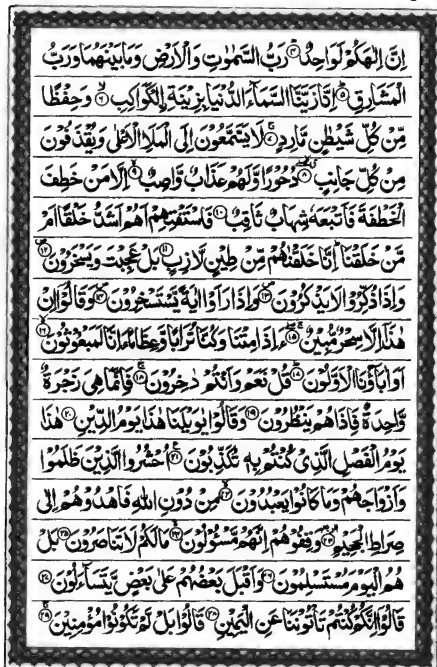 اِنَّ اِلٰهَكُمْ لَوَاحِدٌ ۝۴ رَبُّ السَّمٰوٰتِ وَالْاَرْضِ وَمَا بَيْنَهُمَا وَرَبُّ
الْمَشَارِقِ ۝۵ اِنَّا زَيَّنَّا السَّمَآءَ الدُّنْيَا بِزِيْنَةِ اِۨلْكَوَاكِبِ ۝۶ وَحِفْظًا
مِّنْ كُلِّ شَيْطٰنٍ مَّارِدٍ ۝۷ لَا يَسَّمَّعُوْنَ اِلَى الْمَلَاِ الْاَعْلٰى وَيُقْذَفُوْنَ
مِنْ كُلِّ جَانِبٍ ۝۸ دُحُوْرًا وَّلَهُمْ عَذَابٌ وَّاصِبٌ ۝۹ اِلَّا مَنْ خَطِفَ
الْخَطْفَةَ فَاَتْبَعَهٗ شِهَابٌ ثَاقِبٌ ۝۱۰ فَاسْتَفْتِهِمْ اَهُمْ اَشَدُّ خَلْقًا اَمْ
مَّنْ خَلَقْنَا اِنَّا خَلَقْنٰهُمْ مِّنْ طِيْنٍ لَّازِبٍ ۝۱۱ بَلْ عَجِبْتَ وَيَسْخَرُوْنَ ۝۱۲
وَاِذَا ذُكِّرُوْا لَا يَذْكُرُوْنَ ۝۱۳ وَاِذَا رَاَوْا اٰيَةً يَّسْتَسْخِرُوْنَ ۝۱۴ وَقَالُوْا اِنْ
هٰذَا اِلَّا سِحْرٌ مُّبِيْنٌ ۝۱۵ ءَاِذَا مِتْنَا وَكُنَّا تُرَابًا وَّعِظَامًا ءَاِنَّا لَمَبْعُوْثُوْنَ ۝۱۶
اَوَاٰبَآؤُنَا الْاَوَّلُوْنَ ۝۱۷ قُلْ نَعَمْ وَاَنْتُمْ دٰخِرُوْنَ ۝۱۸ فَاِنَّمَا هِيَ زَجْرَةٌ
وَّاحِدَةٌ فَاِذَا هُمْ يَنْظُرُوْنَ ۝۱۹ وَقَالُوْا يٰوَيْلَنَا هٰذَا يَوْمُ الدِّيْنِ ۝۲۰ هٰذَا
يَوْمُ الْفَصْلِ الَّذِيْ كُنْتُمْ بِهٖ تُكَذِّبُوْنَ ۝۲۱ اُحْشُرُوا الَّذِيْنَ ظَلَمُوْا
وَاَزْوَاجَهُمْ وَمَا كَانُوْا يَعْبُدُوْنَ ۝۲۲ مِنْ دُوْنِ اللّٰهِ فَاهْدُوْهُمْ اِلٰى
صِرَاطِ الْجَحِيْمِ ۝۲۳ وَقِفُوْهُمْ اِنَّهُمْ مَّسْئُوْلُوْنَ ۝۲۴ مَا لَكُمْ لَا تَنَاصَرُوْنَ ۝۲۵ بَلْ
هُمُ الْيَوْمَ مُسْتَسْلِمُوْنَ ۝۲۶ وَاَقْبَلَ بَعْضُهُمْ عَلٰى بَعْضٍ يَّتَسَآءَلُوْنَ ۝۲۷
قَالُوْا اِنَّكُمْ كُنْتُمْ تَاْتُوْنَنَا عَنِ الْيَمِيْنِ ۝۲۸ قَالُوْا بَلْ لَّمْ تَكُوْنُوْا مُؤْمِنِيْنَ ۝۲۹